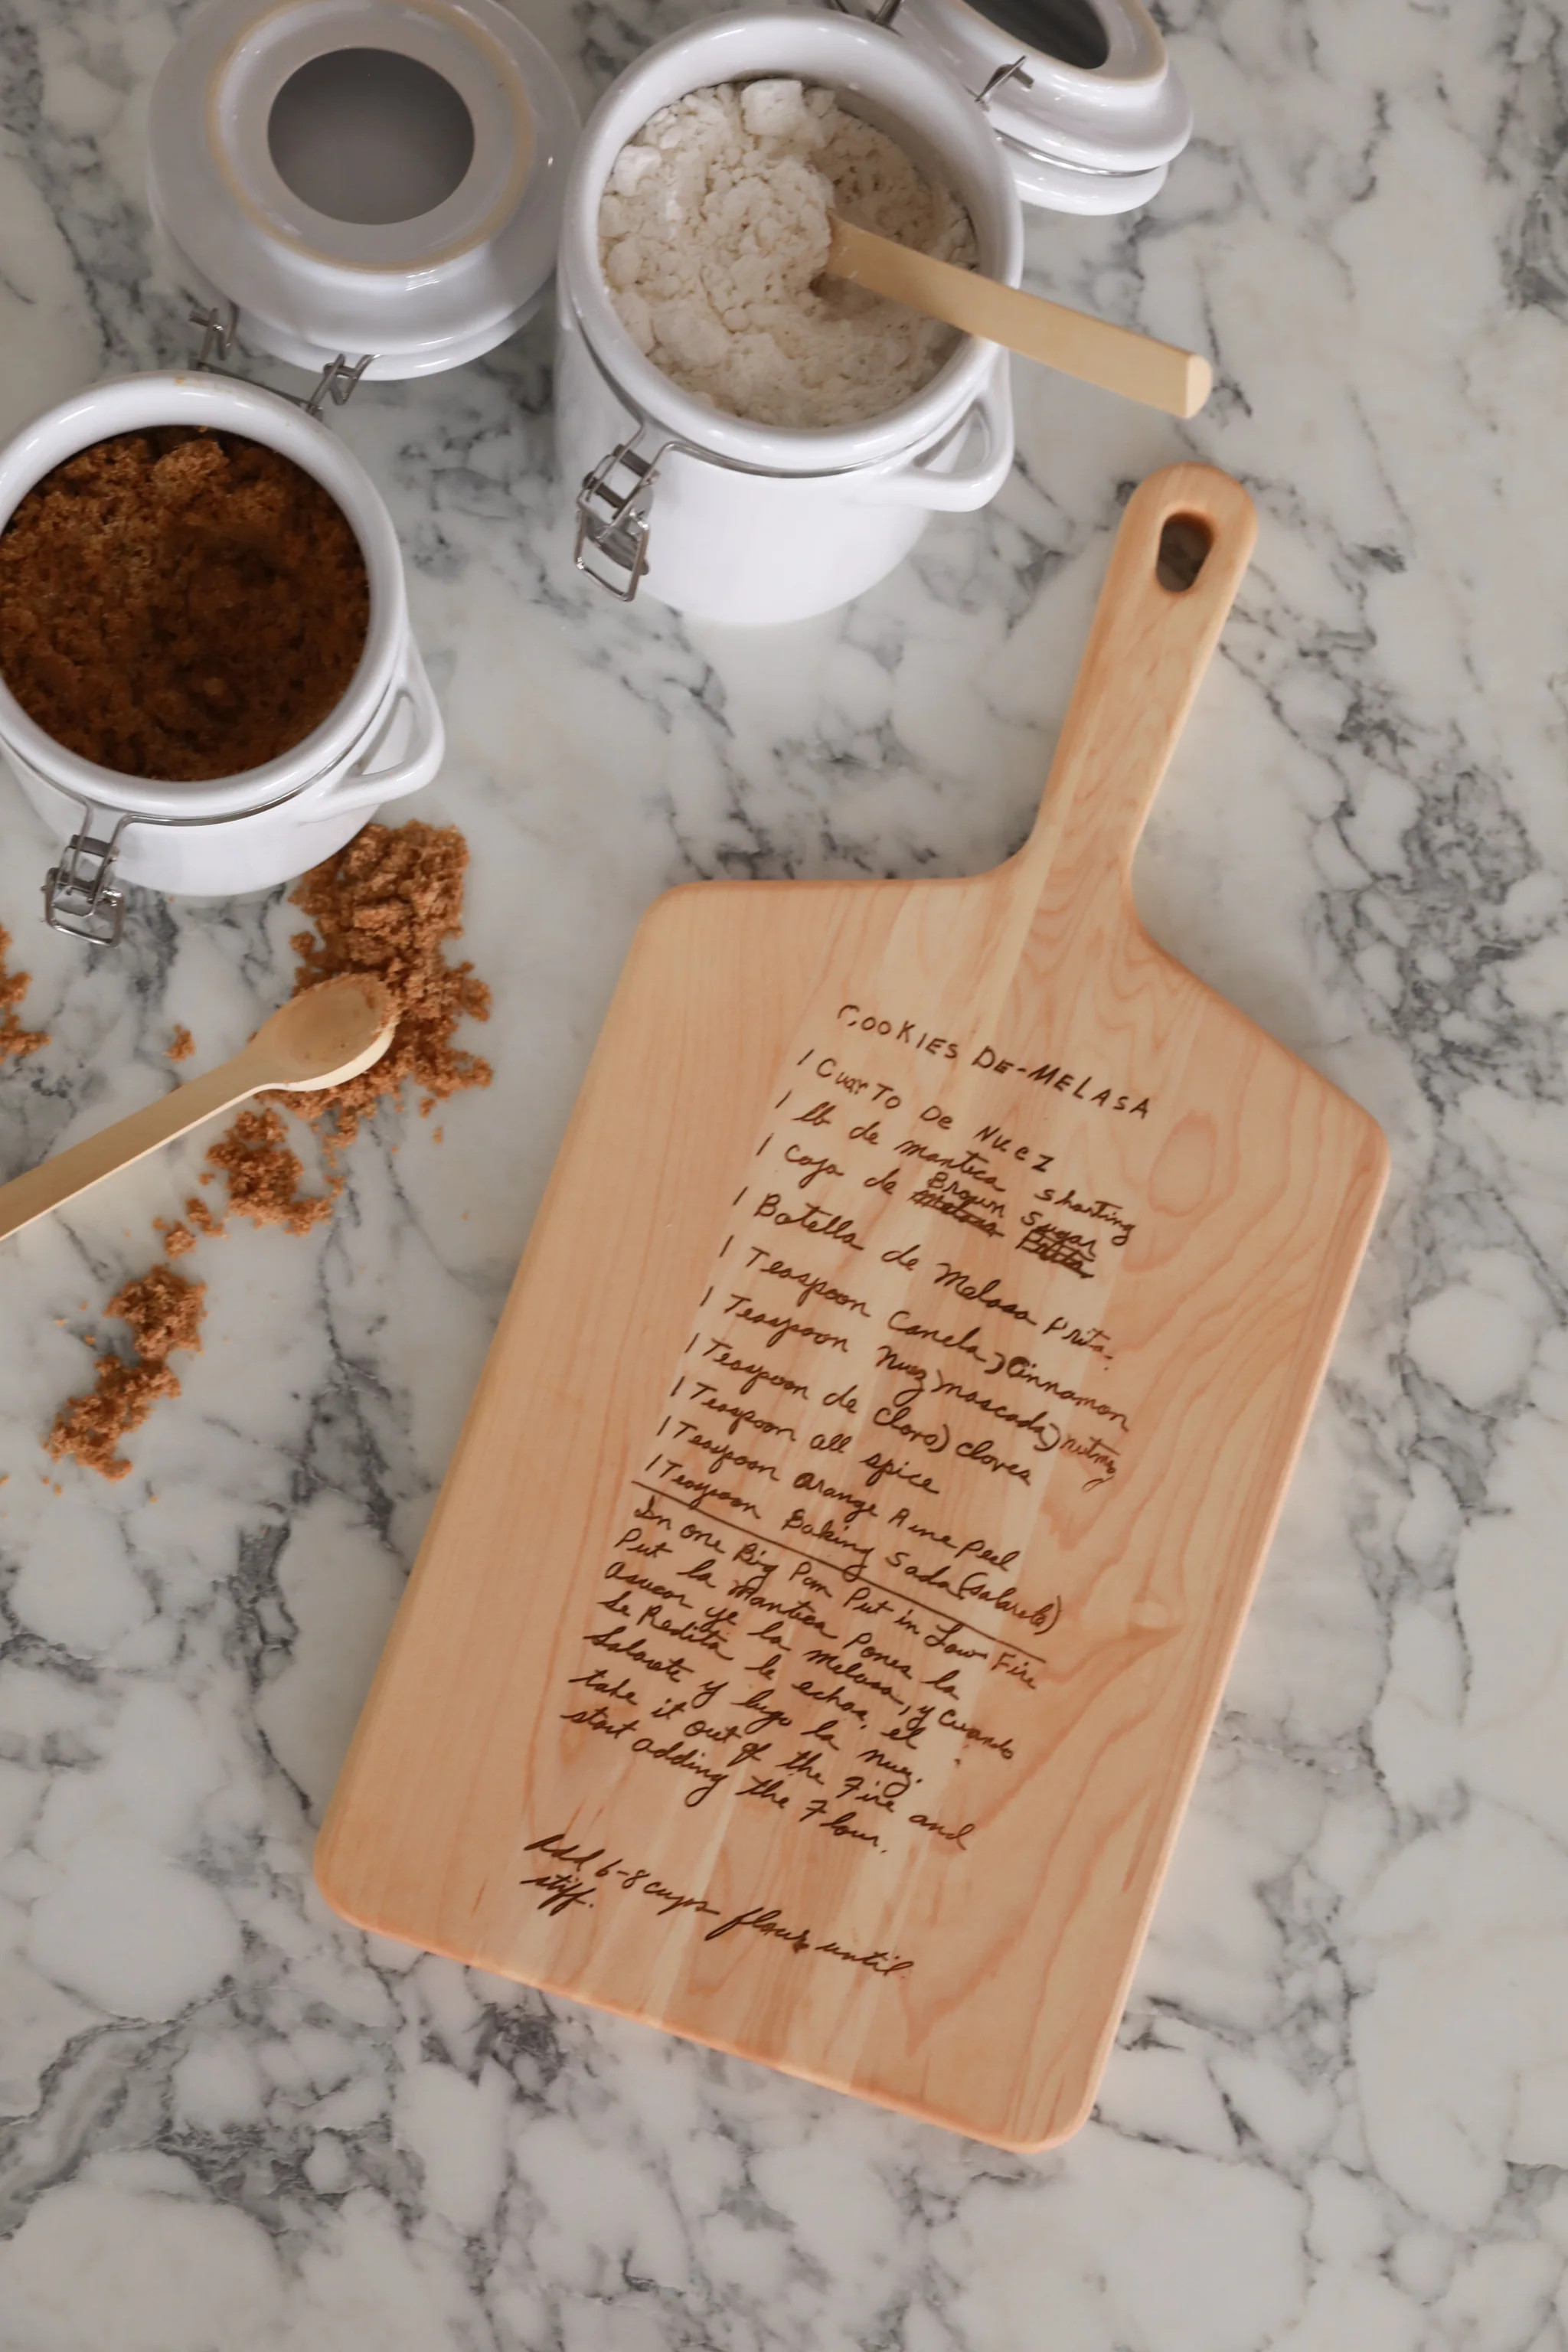 COOKIES DE-MELASA
1 Cuarto De Nuez
1 lb de manteca shorting
1 Caja de Brown Sugar
1 Botella de Melasa Prita.
1 Teaspoon Canela) Cinnamon
1 Teaspoon Nuez moscada) nutmeg
1 Teaspoon de Clavo) cloves
1 Teaspoon all spice
1 Teaspoon orange Rine peel
1 Teaspoon Baking Soda (salarete)
In one Big Pan Put in Low Fire
Put la Manteca Pones la
asucar ye la melasa, y cuando
se Redita le echas, el
Salarete y lugo la nuez.
take it out of the Fire and
start adding the Flour.
Add 6-8 cups flour until
stiff.